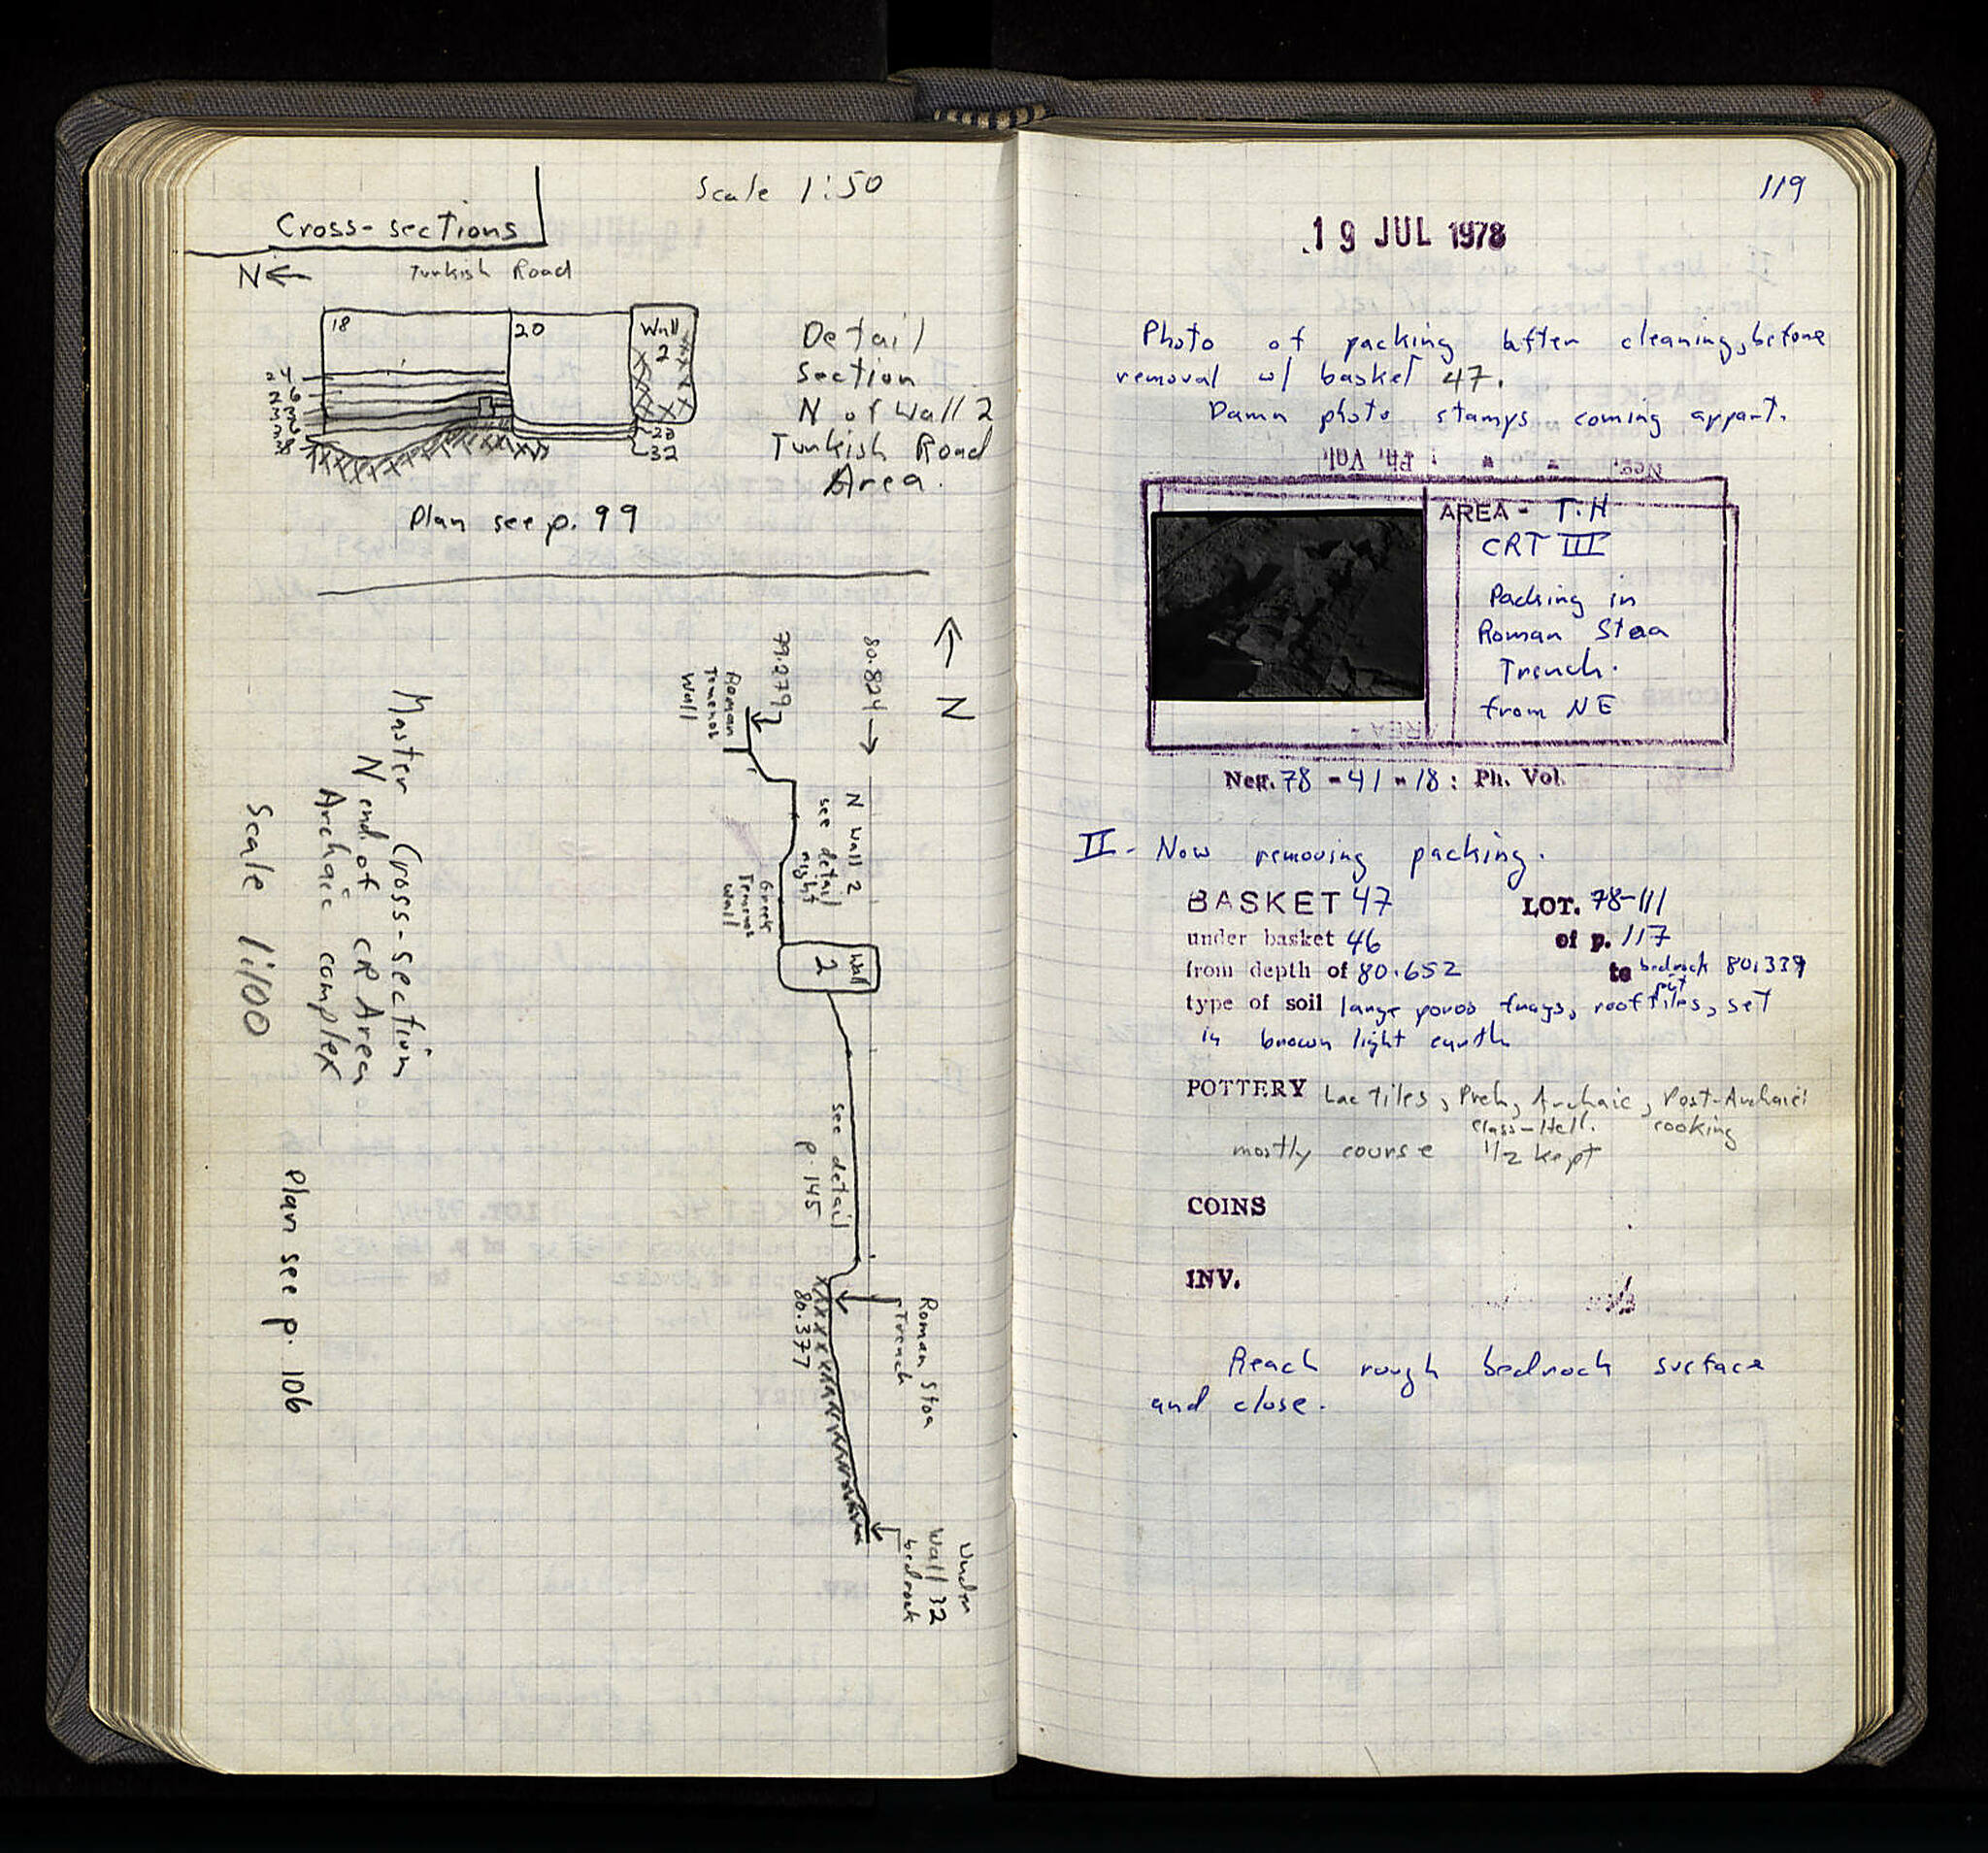 Scale 1:50
Cross-sections
N ← Turkish Road
18
20
Wall
2
24
26
28
32
Detail
Section
N of Wall 2
Turkish Road
Area.
Plan see p. 99
N
80.824
79.279
Roman
Temenos
Wall
N Wall 2
see detail
right
Greek
Temenos
Wall
Wall
2
see detail
p. 145
Roman Stoa
Trench
80.377
Under
Wall 32
bedrock
Master Cross-section
N end of CR Area
Archaic complex
Scale 1:100
Plan see p. 106
119
19 JUL 1978
Photo of packing after cleaning, before
removal w/ basket 47.
Damn photo stamps coming appart.
Neg. : Ph. Vol.
AREA - T.H
CRT III
Packing in
Roman Stoa
Trench.
from NE
AREA -
Neg. 78 - 41 - 18 : Ph. Vol.
II - Now removing packing.
BASKET 47 LOT. 78-111
under basket 46 of p. 117
from depth of 80.652 to bedrock 80.339
type of soil large poros frags, rooftiles, set
in brown light earth
POTTERY Lac tiles, Preh, Archaic, Post-Archaic:
Class-Hell. cooking
mostly course 1/2 kept
COINS
INV.
Reach rough bedrock surface
and close.